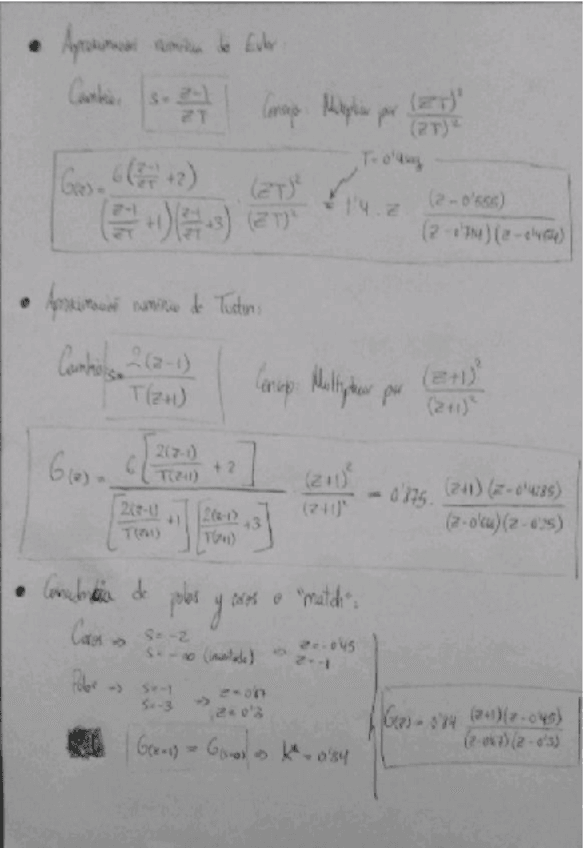 • Aproximación numérica de Euler:
Cambio: s = (z-1)/(zT) Consejo: Multiplicar por (zT)²/(zT)²
T = 0'4 seg
G(z) = 6((z-1)/(zT) + 2) / (((z-1)/(zT) + 1)((z-1)/(zT) + 3)) · (zT)²/(zT)² = 1'4 · z (z - 0'555)/((z - 0'714)(z - 0'454))
• Aproximación numérica de Tustin:
Cambio s = 2(z-1)/(T(z+1)) Consejo: Multiplicar por (z+1)²/(z+1)²
G(z) = 6[2(z-1)/(T(z+1)) + 2] / ([2(z-1)/(T(z+1)) + 1][2(z-1)/(T(z+1)) + 3]) · (z+1)²/(z+1)² = 0'875 · (z+1)(z - 0'4285)/((z - 0'66)(z - 0'25))
• de polos y ceros o "match":
Ceros ⇒ s = -2 ⇒ z = 0'45
s = -∞ z = -1
Polos ⇒ s = -1 ⇒ z = 0'67
s = -3 z = 0'3
G(z=1) = G(s=0) ⇒ k* = 0'84
G(z) = 0'84 (z+1)(z - 0'45)/((z - 0'67)(z - 0'3))